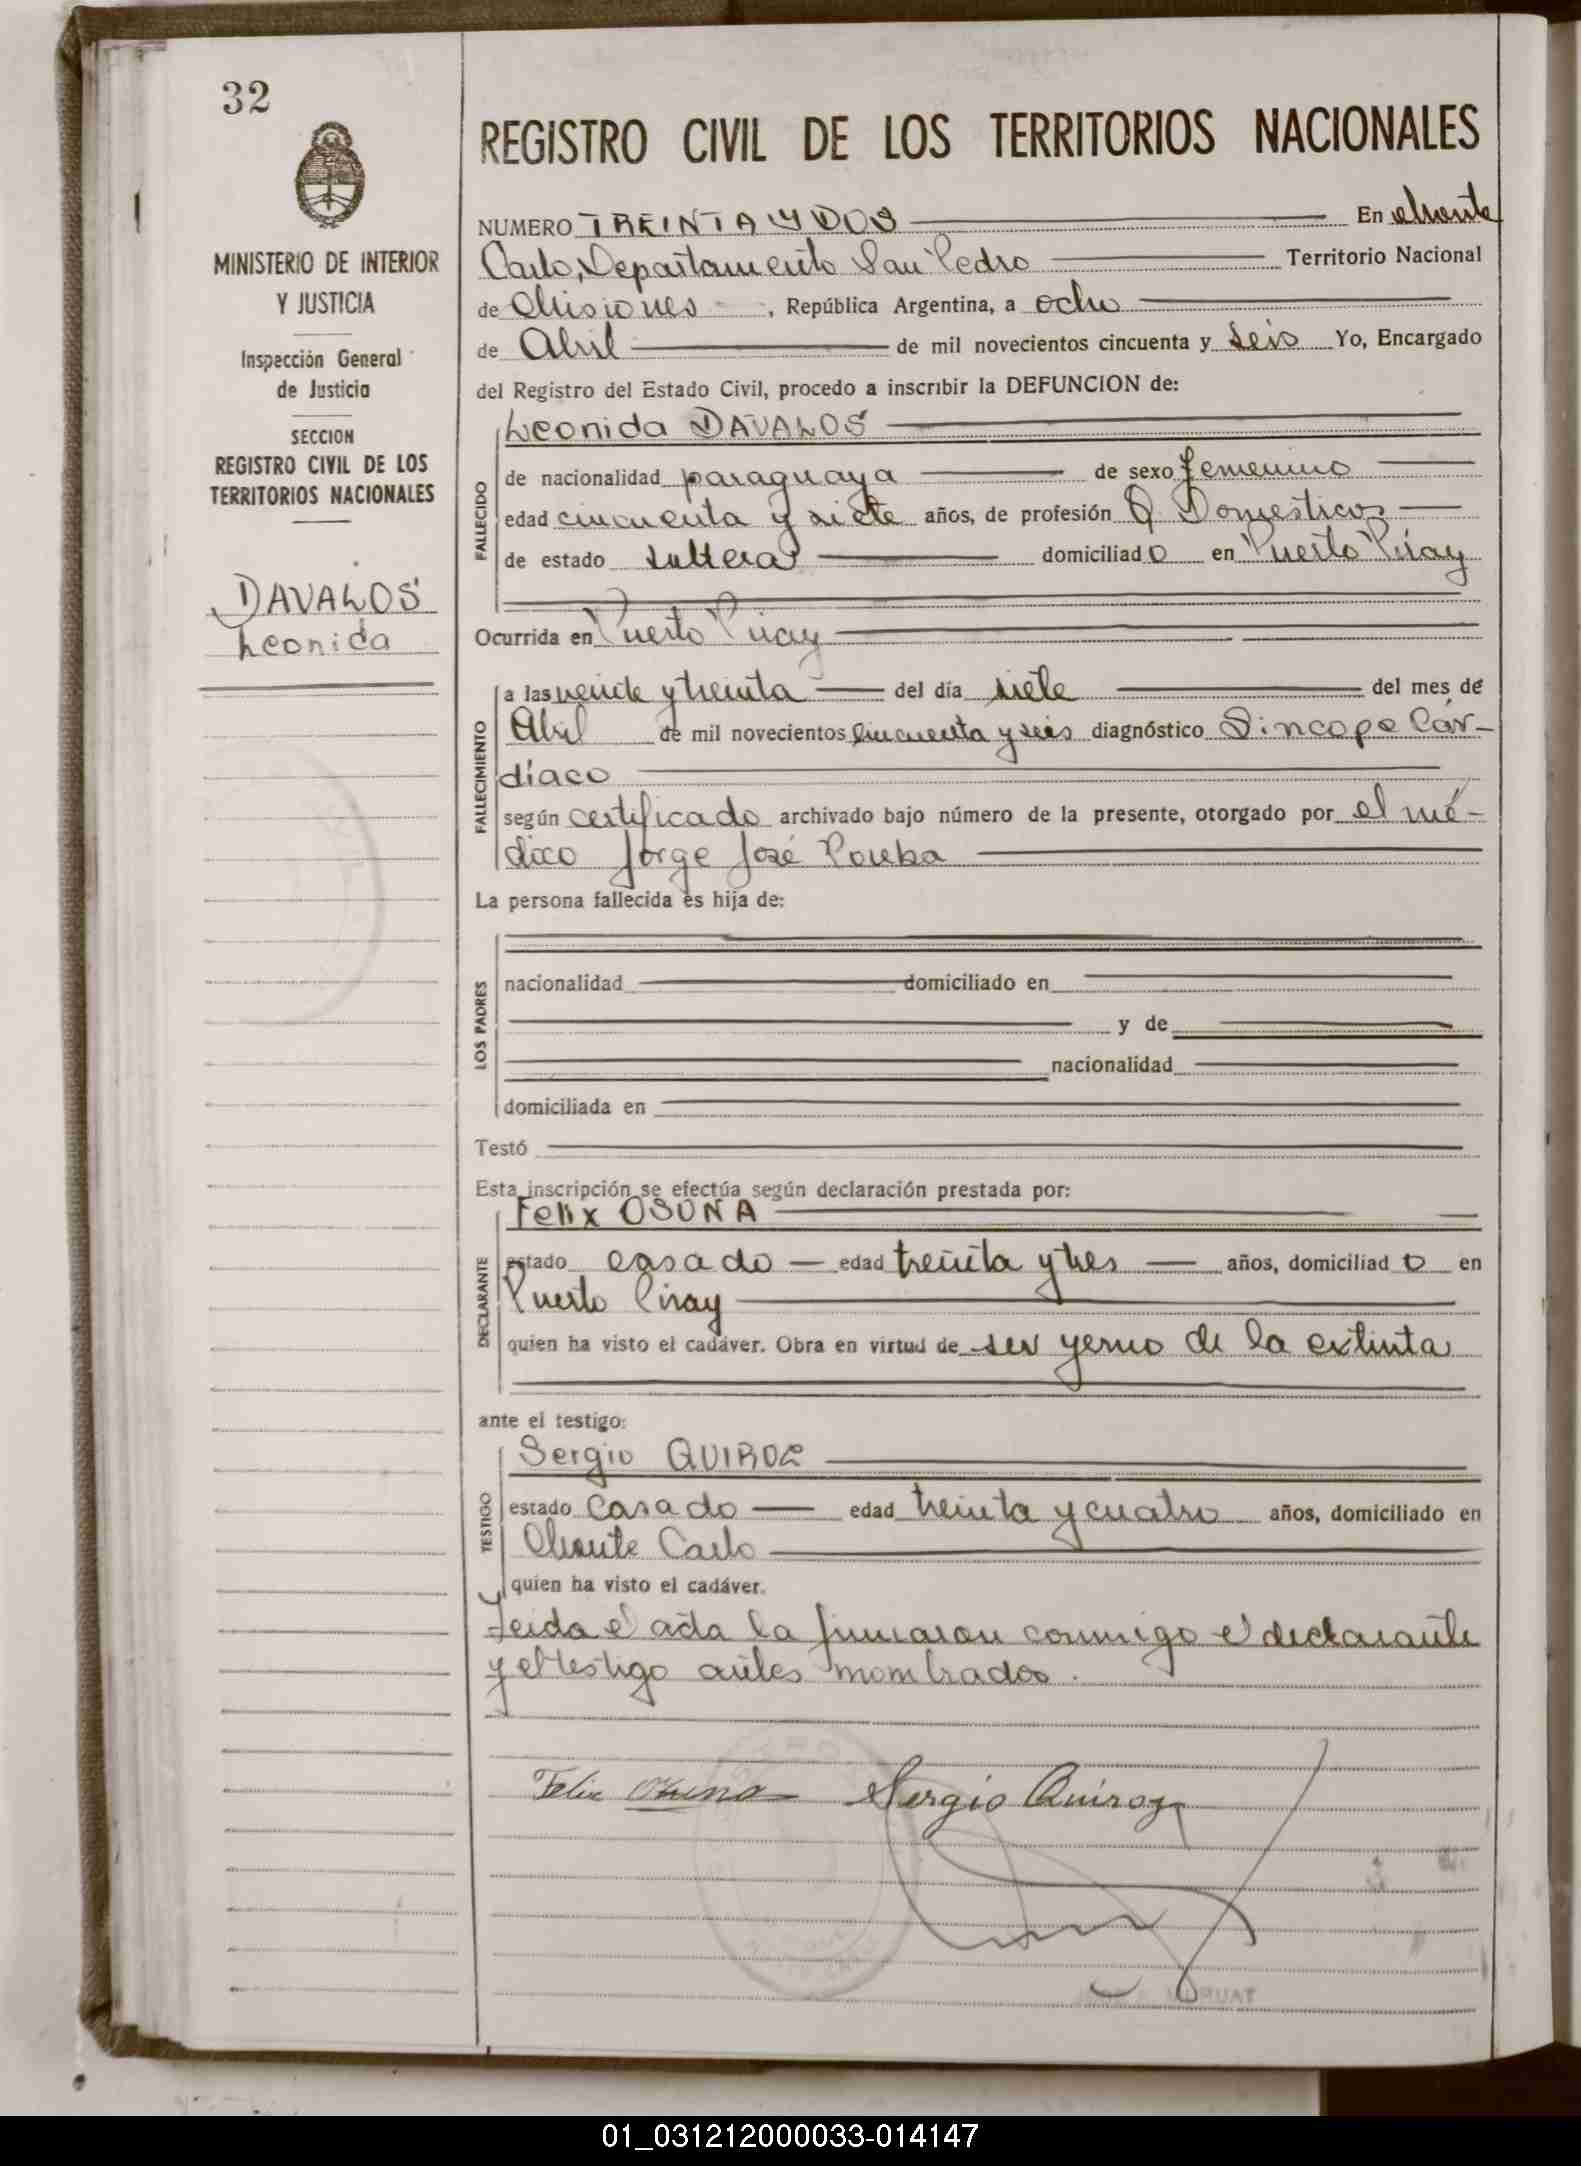 32
MINISTERIO DE INTERIOR
Y JUSTICIA
Inspección General
de Justicia
SECCION
REGISTRO CIVIL DE LOS
TERRITORIOS NACIONALES
DAVALOS
Leonida
REGISTRO CIVIL DE LOS TERRITORIOS NACIONALES
NUMERO TREINTA Y DOS En Monte
Carlo, Departamento San Pedro Territorio Nacional
de Misiones, República Argentina, a ocho
de Abril de mil novecientos cincuenta y seis Yo, Encargado
del Registro del Estado Civil, procedo a inscribir la DEFUNCION de:
Leonida DAVALOS
FALLECIDO
de nacionalidad paraguaya de sexo femenino
edad cincuenta y siete años, de profesión Q. Domesticos
de estado soltera domiciliado en Puerto Piray
Ocurrida en Puerto Piray
FALLECIMIENTO
a las veinte y treinta del día siete del mes de
Abril de mil novecientos cincuenta y seis diagnóstico Sincope Cár-
diaco
según certificado archivado bajo número de la presente, otorgado por el mé-
dico Jorge José
La persona fallecida es hija de:
LOS PADRES
nacionalidad domiciliado en
y de
nacionalidad
domiciliada en
Testó
Esta inscripción se efectúa según declaración prestada por:
Felix OSUNA
DECLARANTE
estado casado edad treinta y tres años, domiciliado en
Puerto Piray
quien ha visto el cadáver. Obra en virtud de ser yerno de la extinta
ante el testigo:
Sergio QUIROZ
TESTIGO
estado Casado edad treinta y cuatro años, domiciliado en
Monte Carlo
quien ha visto el cadáver.
Leida el acta la firmaron conmigo el declarante
y el testigo antes nombrados.
Felix Sergio Quiroz
01_031212000033-014147